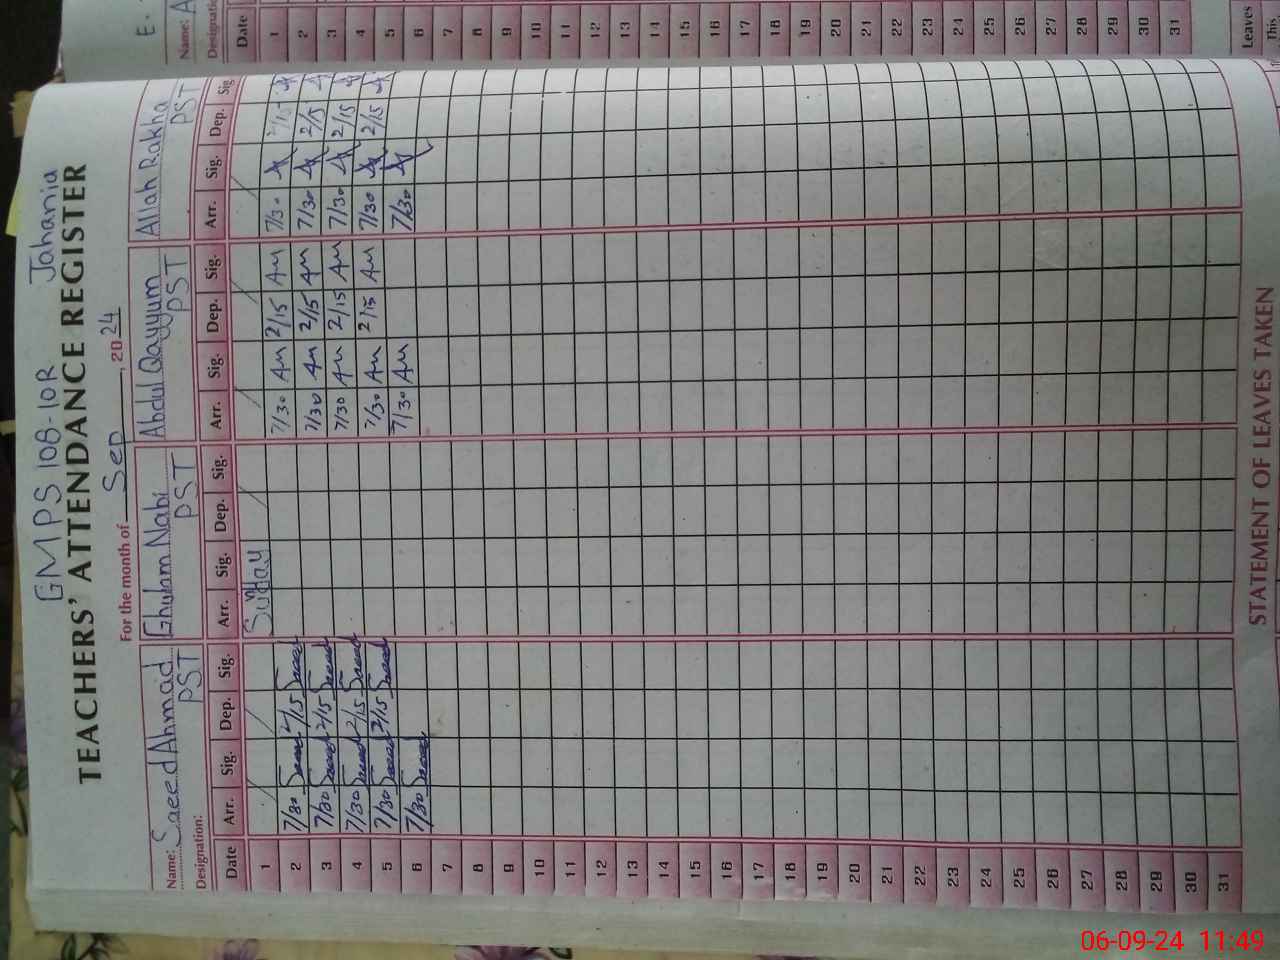 GMPS 108-10R Jahania
TEACHERS' ATTENDANCE REGISTER
For the month of Sep, 20 24
Name: Saeed Ahmad Ghulam Nabi Abdul Qayyum Allah Rakha
Designation: PST PST PST PST
Date Arr. Sig. Dep. Sig. Arr. Sig. Dep. Sig. Arr. Sig. Dep. Sig. Arr. Sig. Dep. Sig
1 Sunday
2 7/30 Saeed 2/15 Saeed 7/30 2/15 7/30 2/15
3 7/30 Saeed 2/15 Saeed 7/30 2/15 7/30 2/15
4 7/30 Saeed 2/15 Saeed 7/30 2/15 7/30 2/15
5 7/30 Saeed 2/15 Saeed 7/30 2/15 7/30 2/15
6 7/30 Saeed 7/30 7/30
7
8
9
10
11
12
13
14
15
16
17
18
19
20
21
22
23
24
25
26
27
28
29
30
31
STATEMENT OF LEAVES TAKEN
E.
Name: A
Designatio
Date
1
2
3
4
5
6
7
8
9
10
11
12
13
14
15
16
17
18
19
20
21
22
23
24
25
26
27
28
29
30
31
Leaves
This
06-09-24 11:49